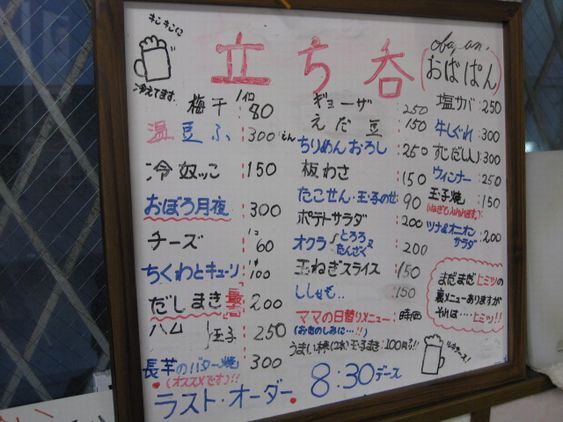 キンキンに
冷えてます
立ち呑
oba, an.
おばぱん
梅干 1コ 80
温豆ふ 300 えん
冷奴っこ 150
おぼろ月夜 300
チーズ 1コ 60
ちくわとキューリ 100
だしまき 200
ハム 玉子 250
長芋のバター焼 300
(オススメです)!!
ギョーザ 250
えだ豆 150
ちりめんおろし 250
板わさ 150
たこせん・玉子のせ 90
ポテトサラダ 200
オクラ とろろ たんざく 200
玉ねぎスライス 150
ししゃも.. 150
ママの日替りメニュー : 時価
(おたのしみに…!!)
うまい棒(2本)玉子焼き : 100円!!
塩サバ 250
牛しぐれ 300
すじだいこん 300
ウィンナー 250
玉子焼 150
(ねぎ入りもあります)
ツナ&オニオンサラダ 200
まだまだヒミツの
裏メニューありますが
それは……ヒミツ!!
ラスト・オーダー 8:30デース